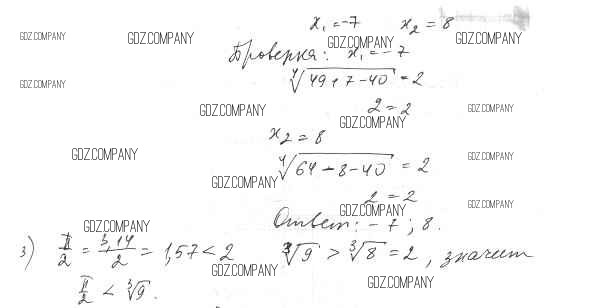 x₁ = -7 x₂ = 8
GDZ.COMPANY GDZ.COMPANY GDZ.COMPANY GDZ.COMPANY
Проверка: x₁ = -7
⁴√(49+7-40) = 2
GDZ.COMPANY
2 = 2
GDZ.COMPANY GDZ.COMPANY
GDZ.COMPANY
x₂ = 8
GDZ.COMPANY GDZ.COMPANY
⁴√(64-8-40) = 2
GDZ.COMPANY
2 = 2
GDZ.COMPANY GDZ.COMPANY
Ответ: -7; 8.
GDZ.COMPANY
3) π/2 = 3,14/2 = 1,57 < 2 ∛9 > ∛8 = 2, значит
GDZ.COMPANY GDZ.COMPANY
π/2 < ∛9.